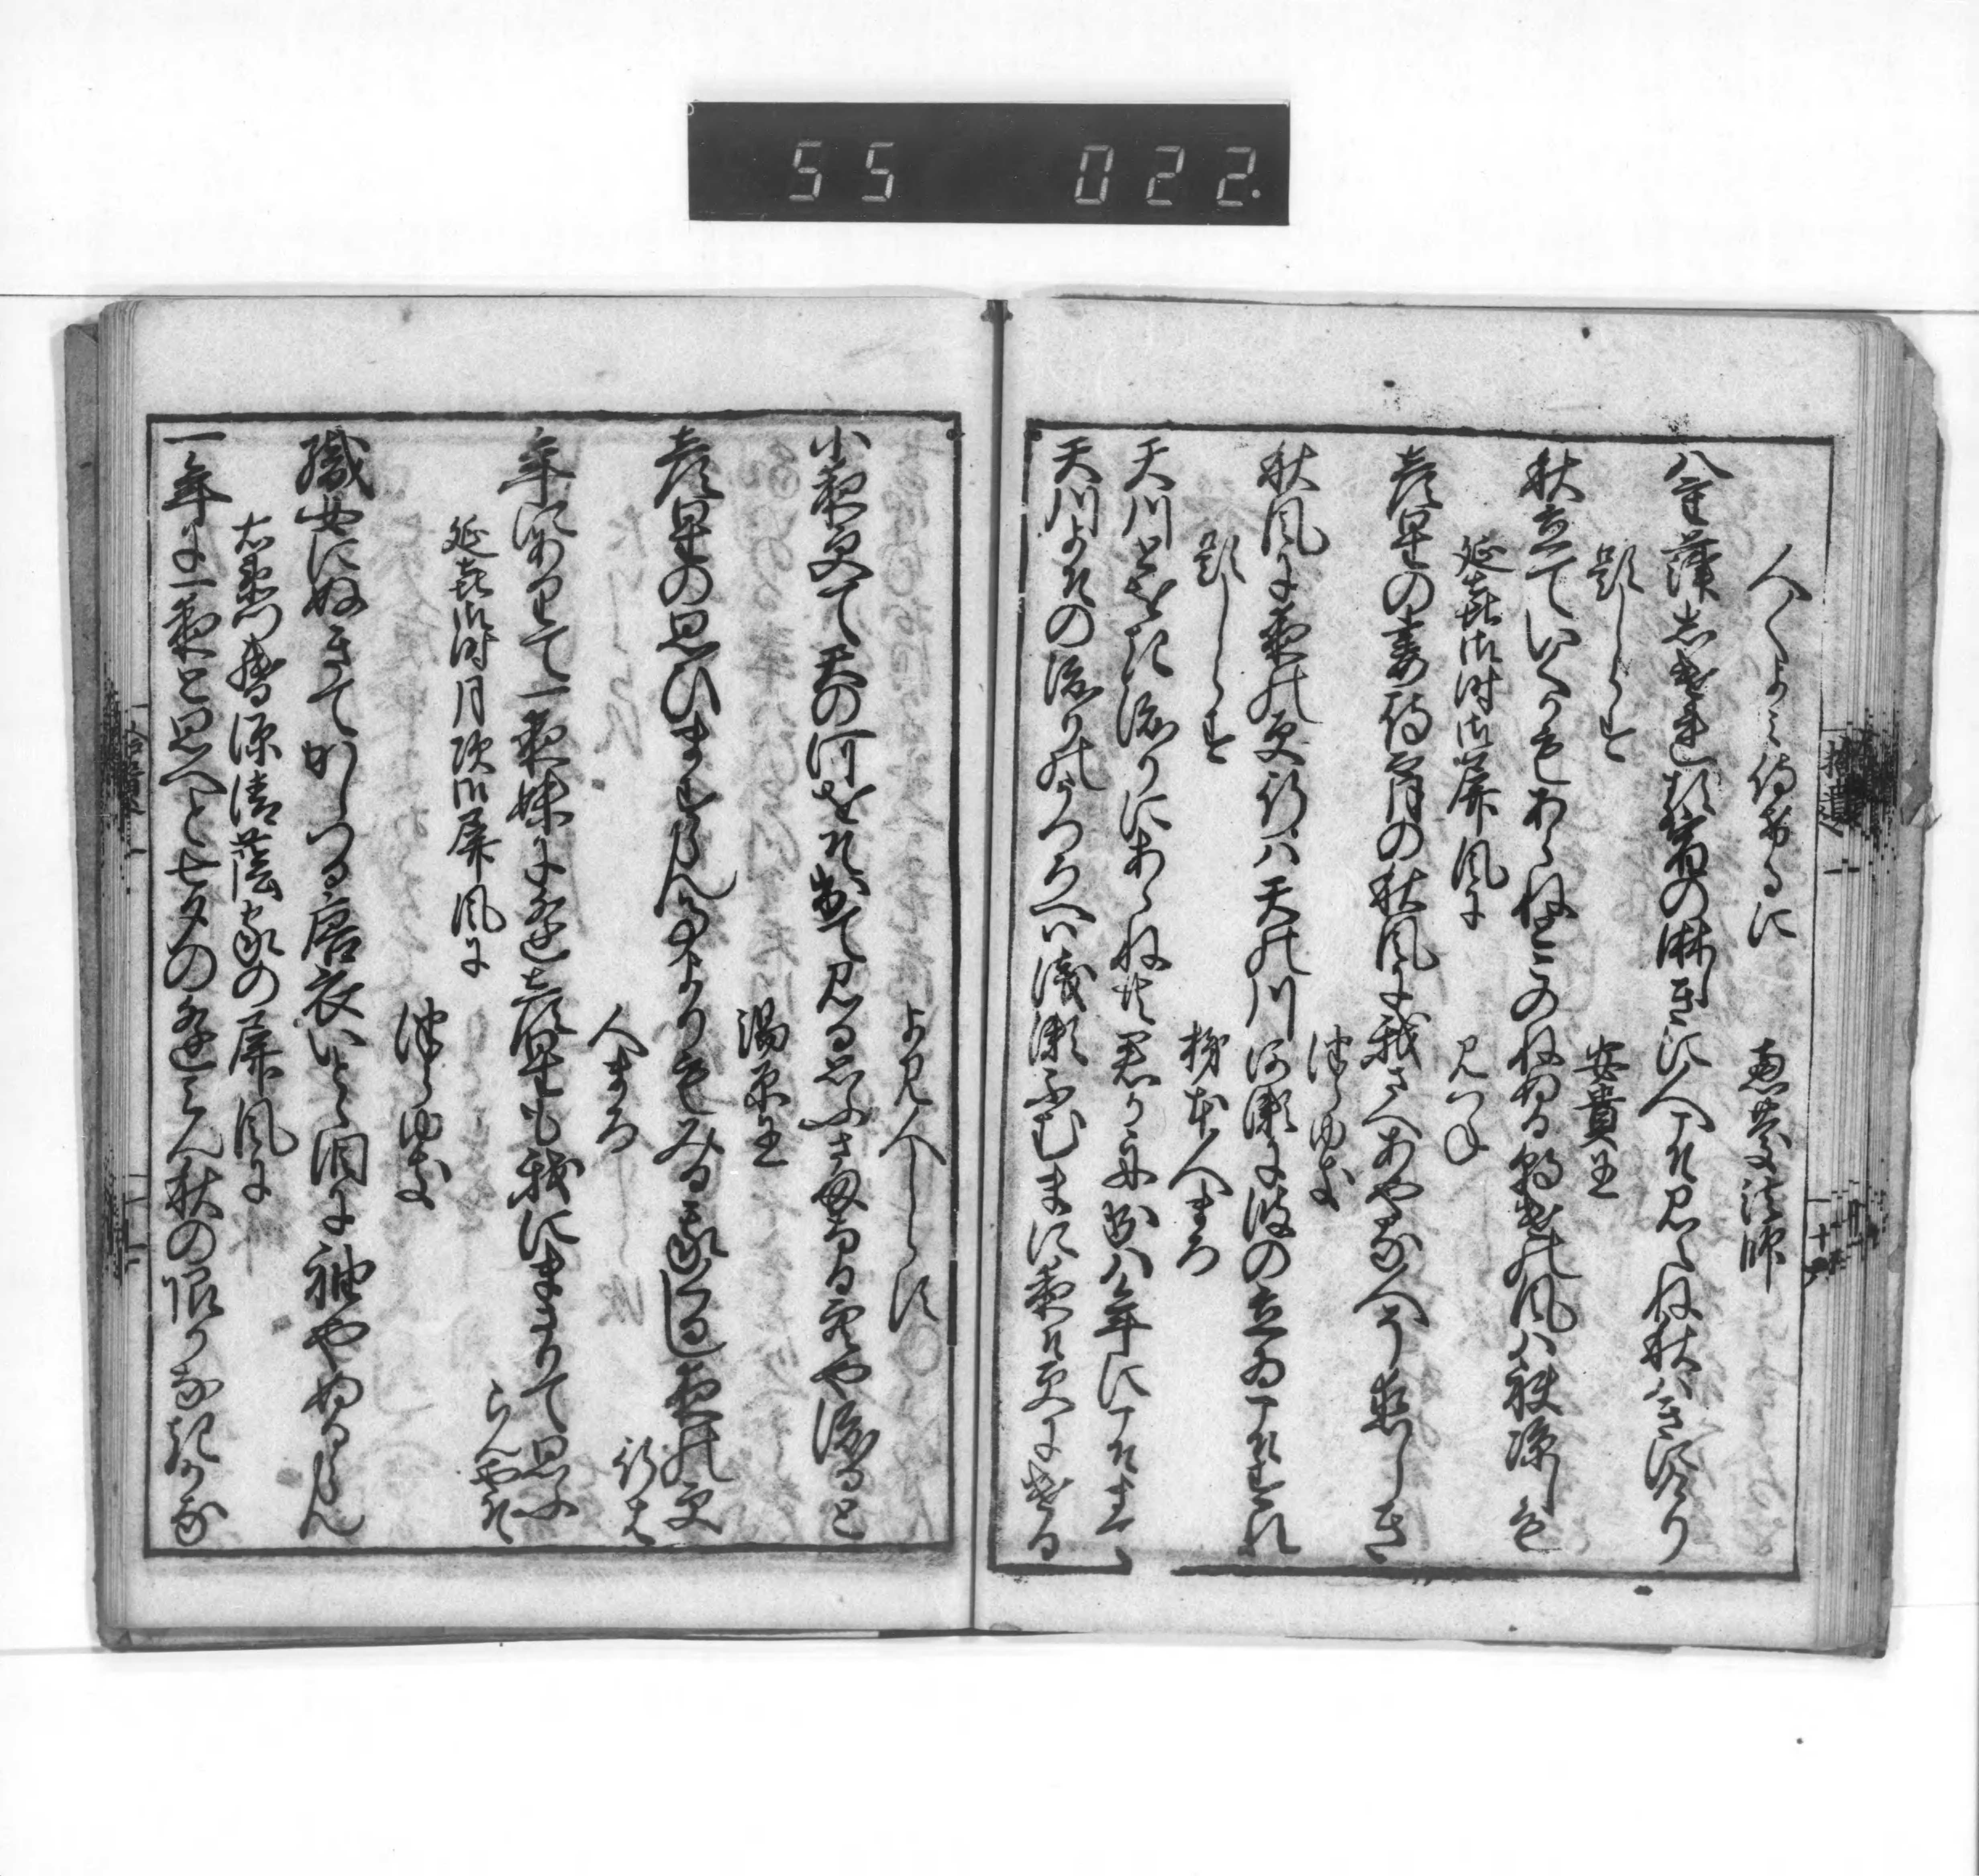 55 022.
人〱よみ侍けるに 恵慶法師
八重葎しけれる宿の淋しきに人こそ見えね秋はきにけり
題しらす 安貴王
秋立ていくかもあらねとこのねぬる朝けの風は袂涼しも
延喜御時御屏風に みつね
彦星の妻待宵の秋風に我さへあやな人そ恋しき
題しらす つらゆき
秋風に夜の更行は天の川河瀬に波の立ゐこそまて
柿本人まろ
天川とをき渡りにあらねとも君か舟出は年にこそまて
天川こその渡りのうつろへは浅瀬ふむまに夜そ更にける
よみ人しらす
小夜更て天の河をそ出て見る思ふさまなる雲や渡ると
湯原王
彦星の思ひますらん事よりもみる我くるし夜の更行は
人まろ
年に有て一夜妹に逢彦星も我にまさりて思ふらんやそ
延喜御時月次御屏風に つらゆき
織女にぬきてかしつる唐衣いとゝ涙に袖やぬるらん
右衛門督源清蔭家の屏風に
一年に一夜と思へと七夕の逢みん秋の限なきかな
拾遺一